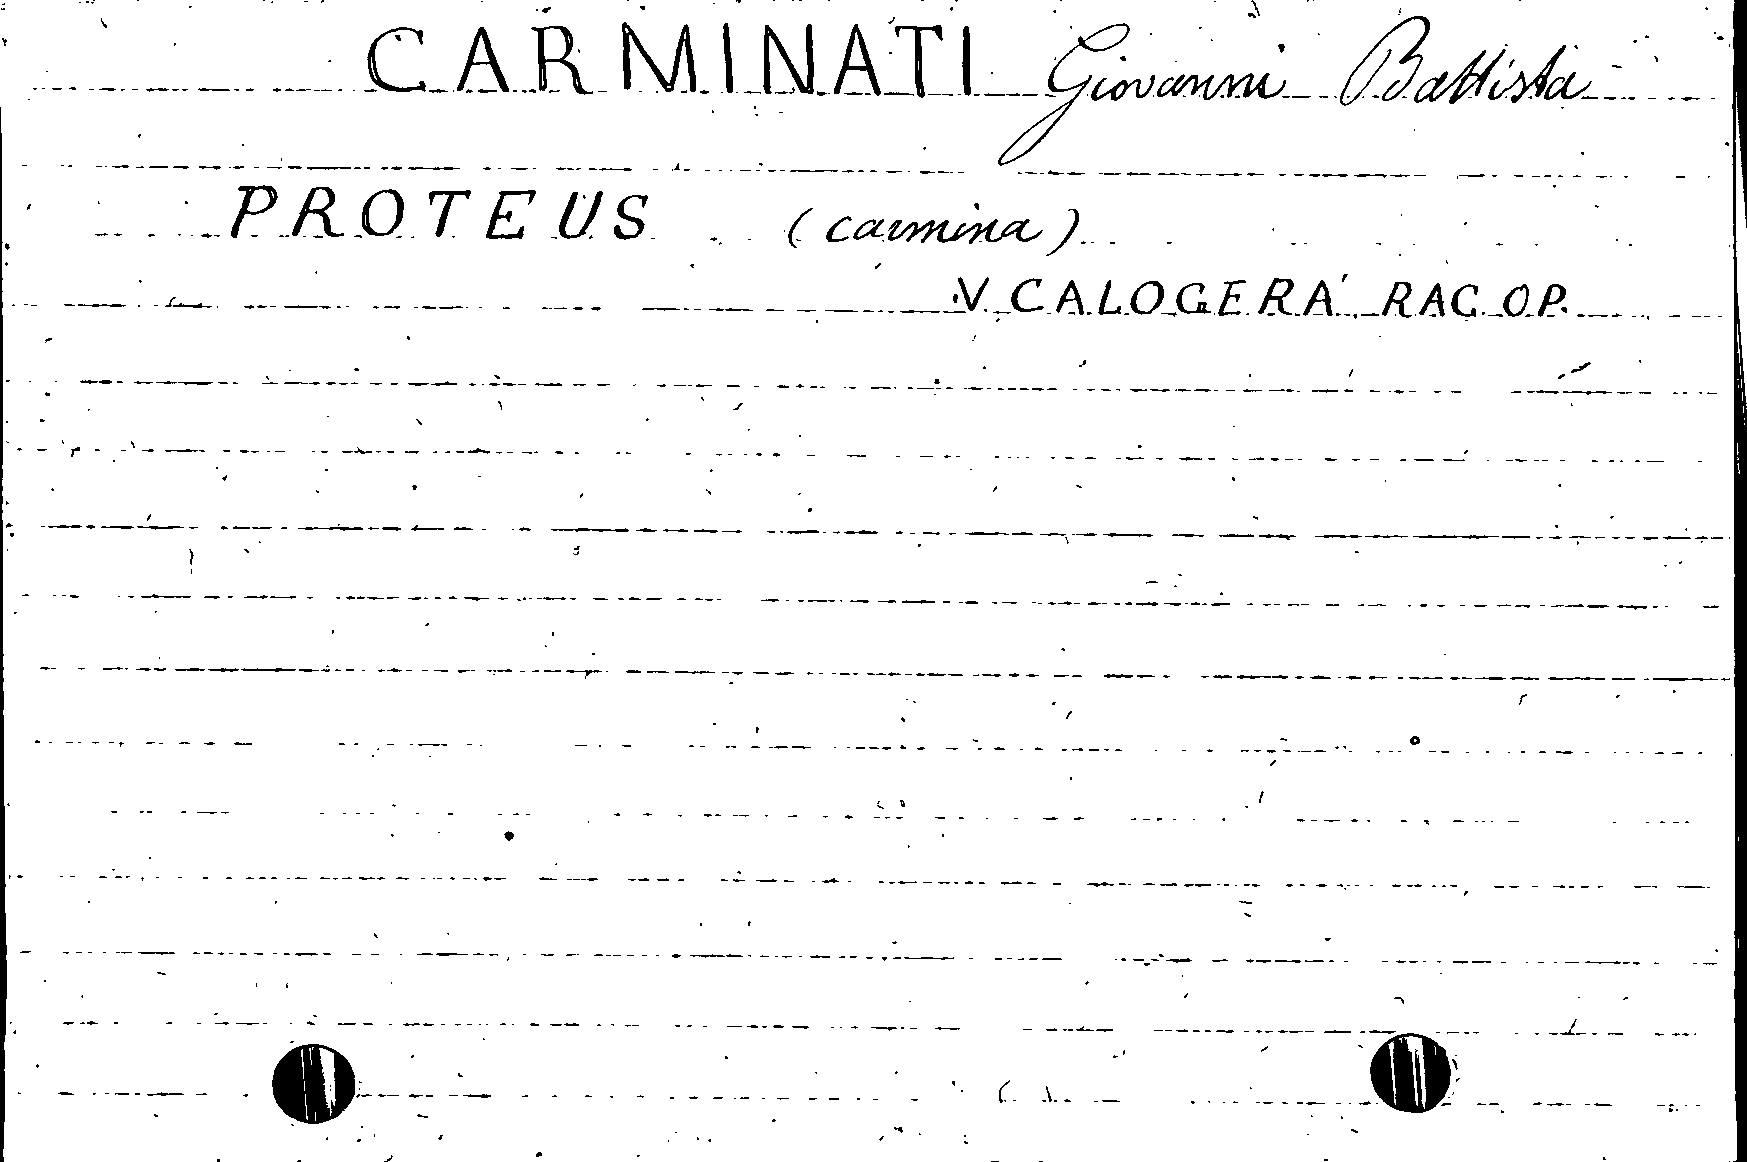 CARMINATI Giovanni Battista
PROTEUS (carmina)
V. CALOGERA' RAC. OP.